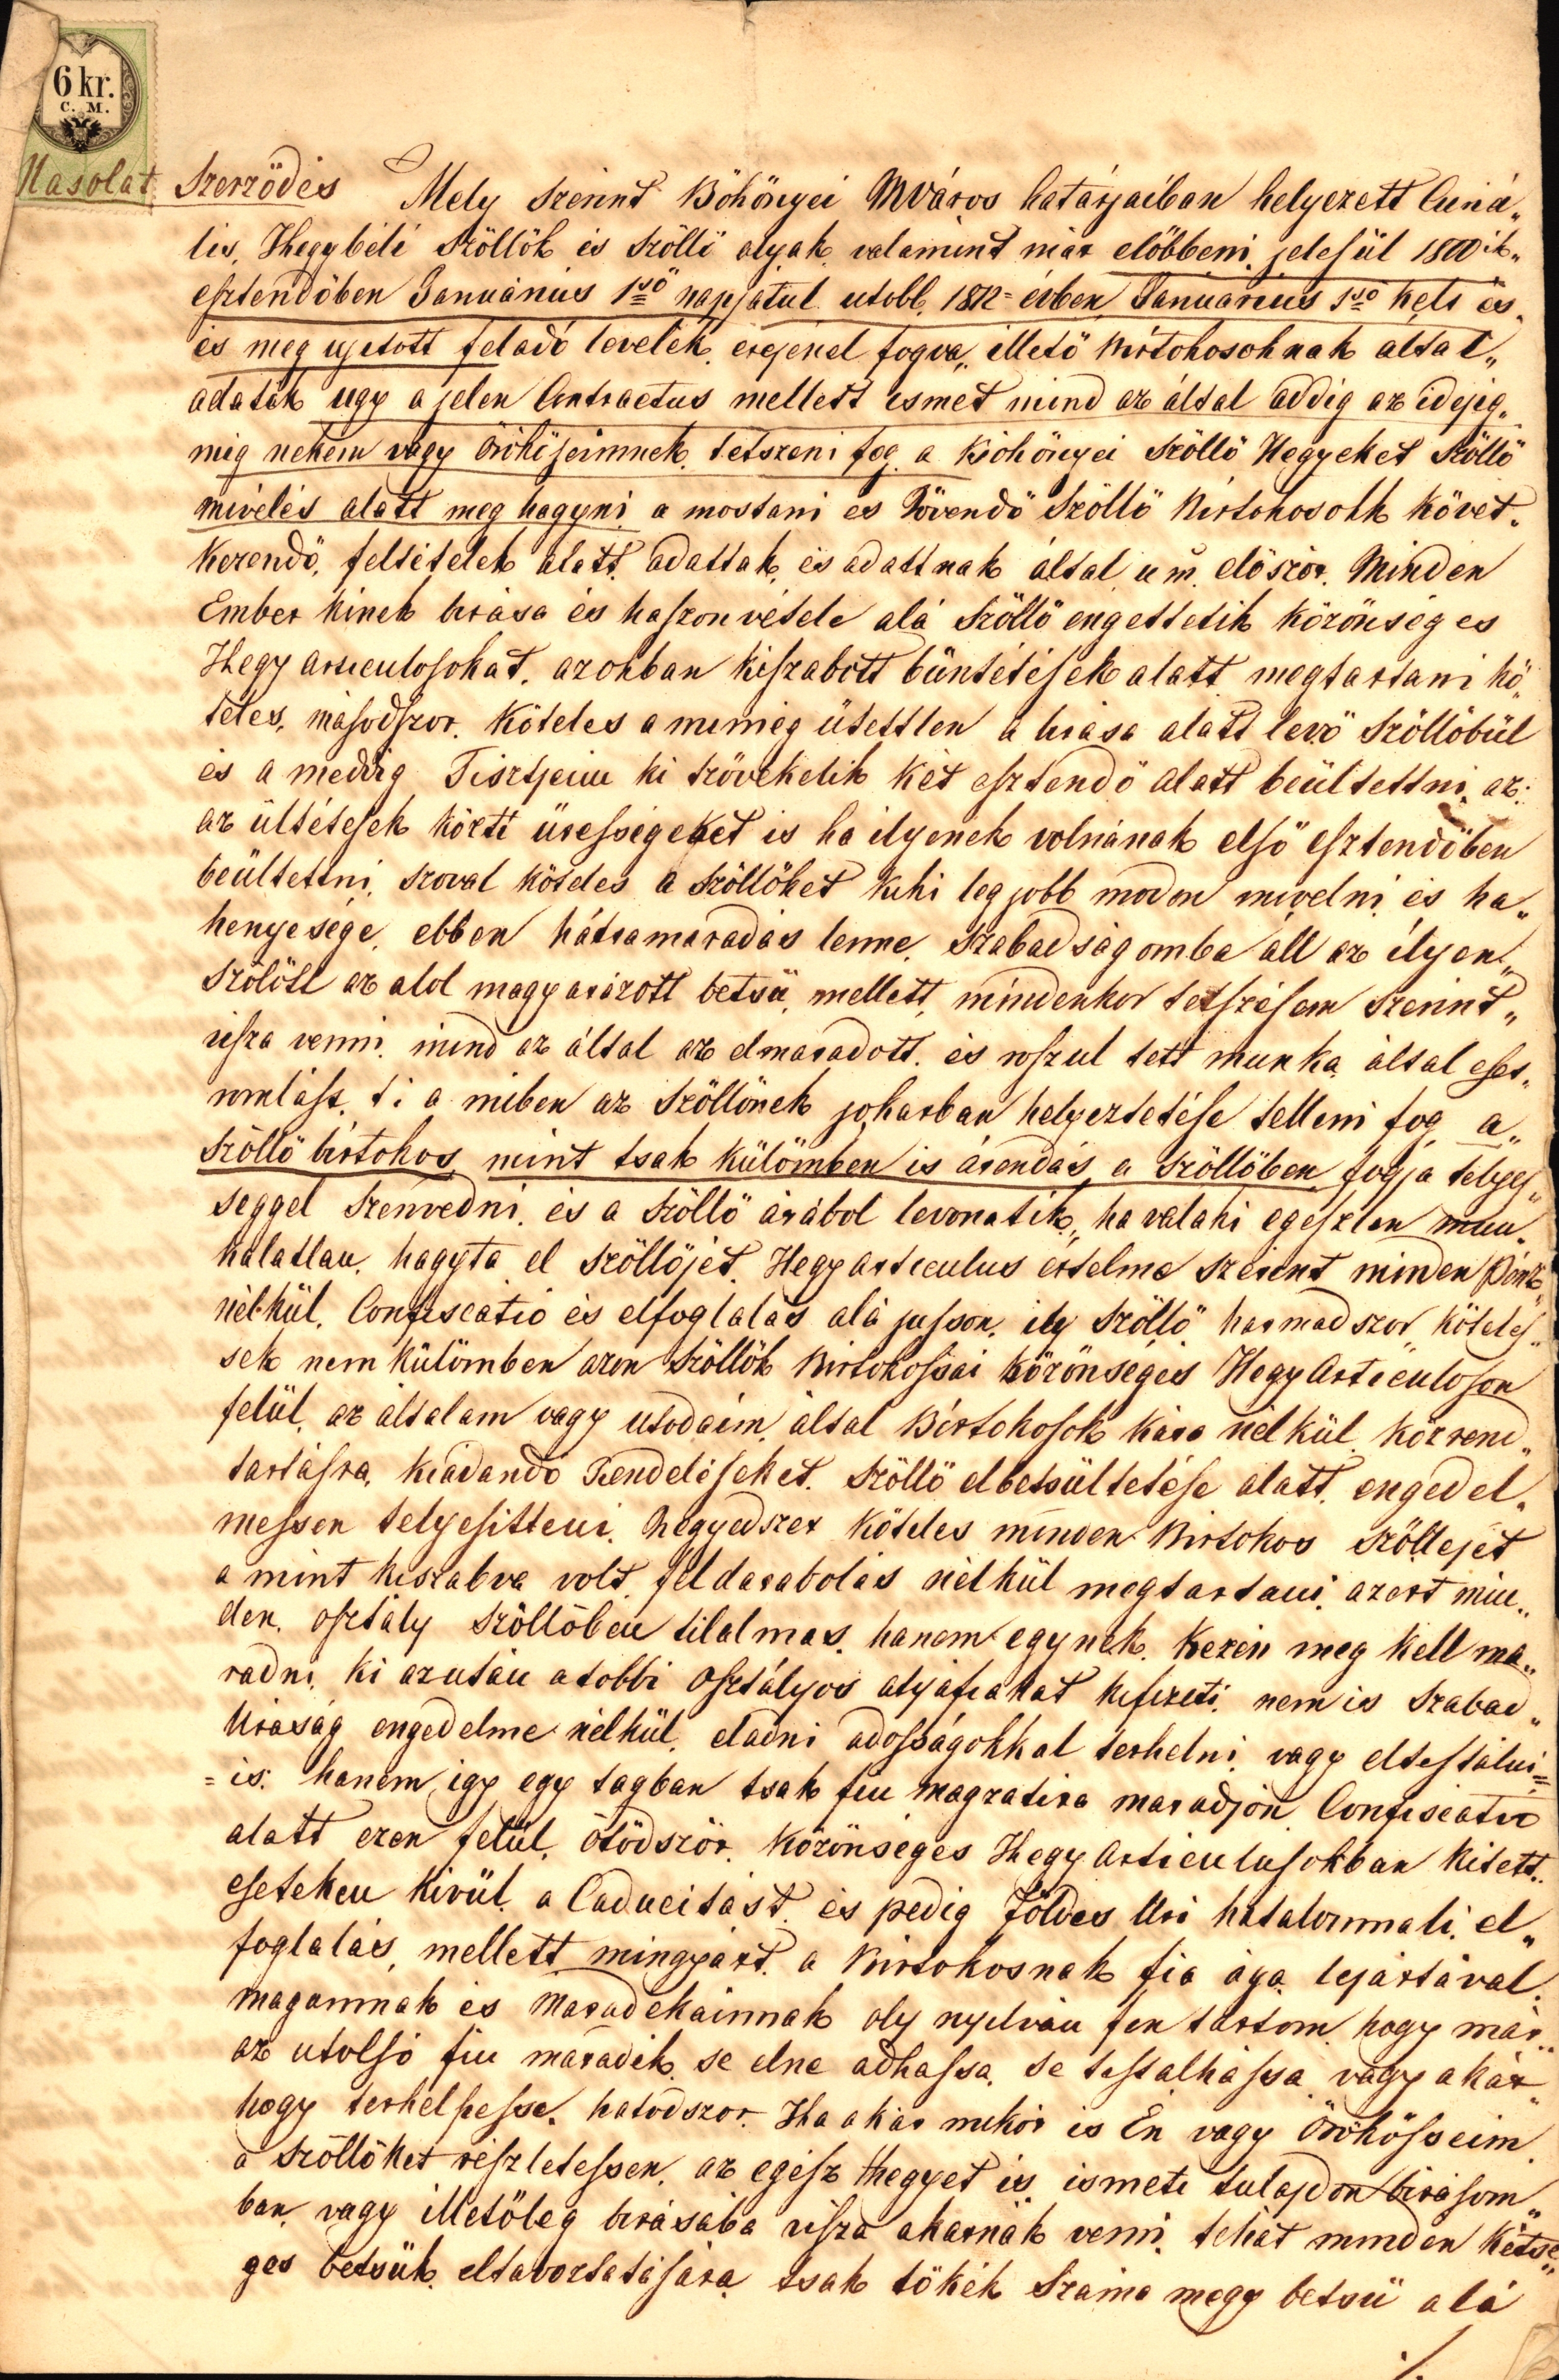 6 kr.
C. M.
Másolat
Szerződés Mely szerint Böhönyei MVáros határjaiban helyezett Curiá„
lis, Hegybéli szöllök és szöllö alyak valamint már előbbeni jelesül 1800ik„
esztendőben Januárius 1ső napjátul utobb 1812= évben Januárius 1ső kelt és„
és meg ujetott feladó levelek erejenel fogva„ illető birtokosoknak által„
adatik ugy a jelen Contractus mellett ismet mind az által addig az idejig„
mig nekem vagy örökösseimnek tetszeni fog a Böhönyei szöllö Hegyeket szöllö
mivelés alatt meg hagyni a mostani es Jövendö szöllö birtokosokk követ„
kezendö, feltételek alatt adattak, és adattnak által u m. elöször. Minden
Ember kinek birása és haszonvétele alá szöllö engettetik közönséges
Hegy articulosokat, azokban kiszabott büntétések alatt megtartani kö„
teles, másodszor. Köteles a mi még ütettlen a birása alatt levö szöllöbül
és a meddig Tisztjeim ki szövekelik két esztendö alatt beültettni, az:
az ültétesek közti ürességeket is ha ilyenek volnának elsö esztendöben
beültettni, szoval köteles a szöllöket kiki leg jobb modon mivelni, és ha„
henyesége, ebben hátramaradás lenne, szabadságomba áll az ilyen„
szölött az alol magyarázott betsü, mellett, mindenkor tetszésem szerint„
visza venni, mind az által az elmaradott, és roszul tett munka, által eset„
romlást, t i a miben az szöllönek jokarban helyeztetése telleni fog a„
szöllö birtokos mint tsak külömben is árendás a szöllöben fogja telyes„
séggel szenvedni, és a szöllö árábol levonatik„ ha valaki egészlen mun„
kálatlan, hagyta el szöllöjét, Hegyarticulus értelme szerint minden Pénz„
nélkül, Confiscatio és elfoglalás alá jusson, ily szöllö harmadszor kötelес„
sek nem külömben azon szöllök Birtokossai közönséges Hegy Articuloson
felül, az általam vagy utodaim, által Birtokosok kára nélkül, közrend„
tartásra, kiadando Rendeléseket, szöllö elbetsültetése alatt, engedel„
messen telyesitteni. Negyedszer köteles minden Birtokos szöllejét
a mint kiszabva volt, feldarabolás nélkül megtartani, azert min„
den, osztály szöllöben tilalmas, hanem egynek, kezén meg kell ma„
radni, ki azután a többi osztályos atyafiakat kifizeti, nem is szabad„
Uraság engedelme nélkül, eladni adosságokkal terhelni, vagy eltestálni=
=is, hanem igy egy tagban tsak fiu magzatira maradjon Confiscatio
alatt ezen felül, ötödször, közönséges Hegy Articulusokban kitett„
eseteken kivül, a Caducitást, és pedig Földes Uri hatalommali, el„
foglalás, mellett mingyárt, a Birtokosnak fia ága lejártával,
magamnak és Maradekainnak oly nyilván fen tartom hogy már„
az utolsó fiu maradék, se elne adhassa, se testalhassa vagy akár„
hogy terhelhesse, hatodszor. Ha akár mikor is Én vagy Örökösseim
a szöllöket részletessen, az egész Hegyet is ismeti tulajdon birásom„
ban, vagy illetöleg birásába visza akarnák venni, tehát minden kétsé„
ges betsük, eltavoztatására tsak tökék száma megy betsü alá
./.